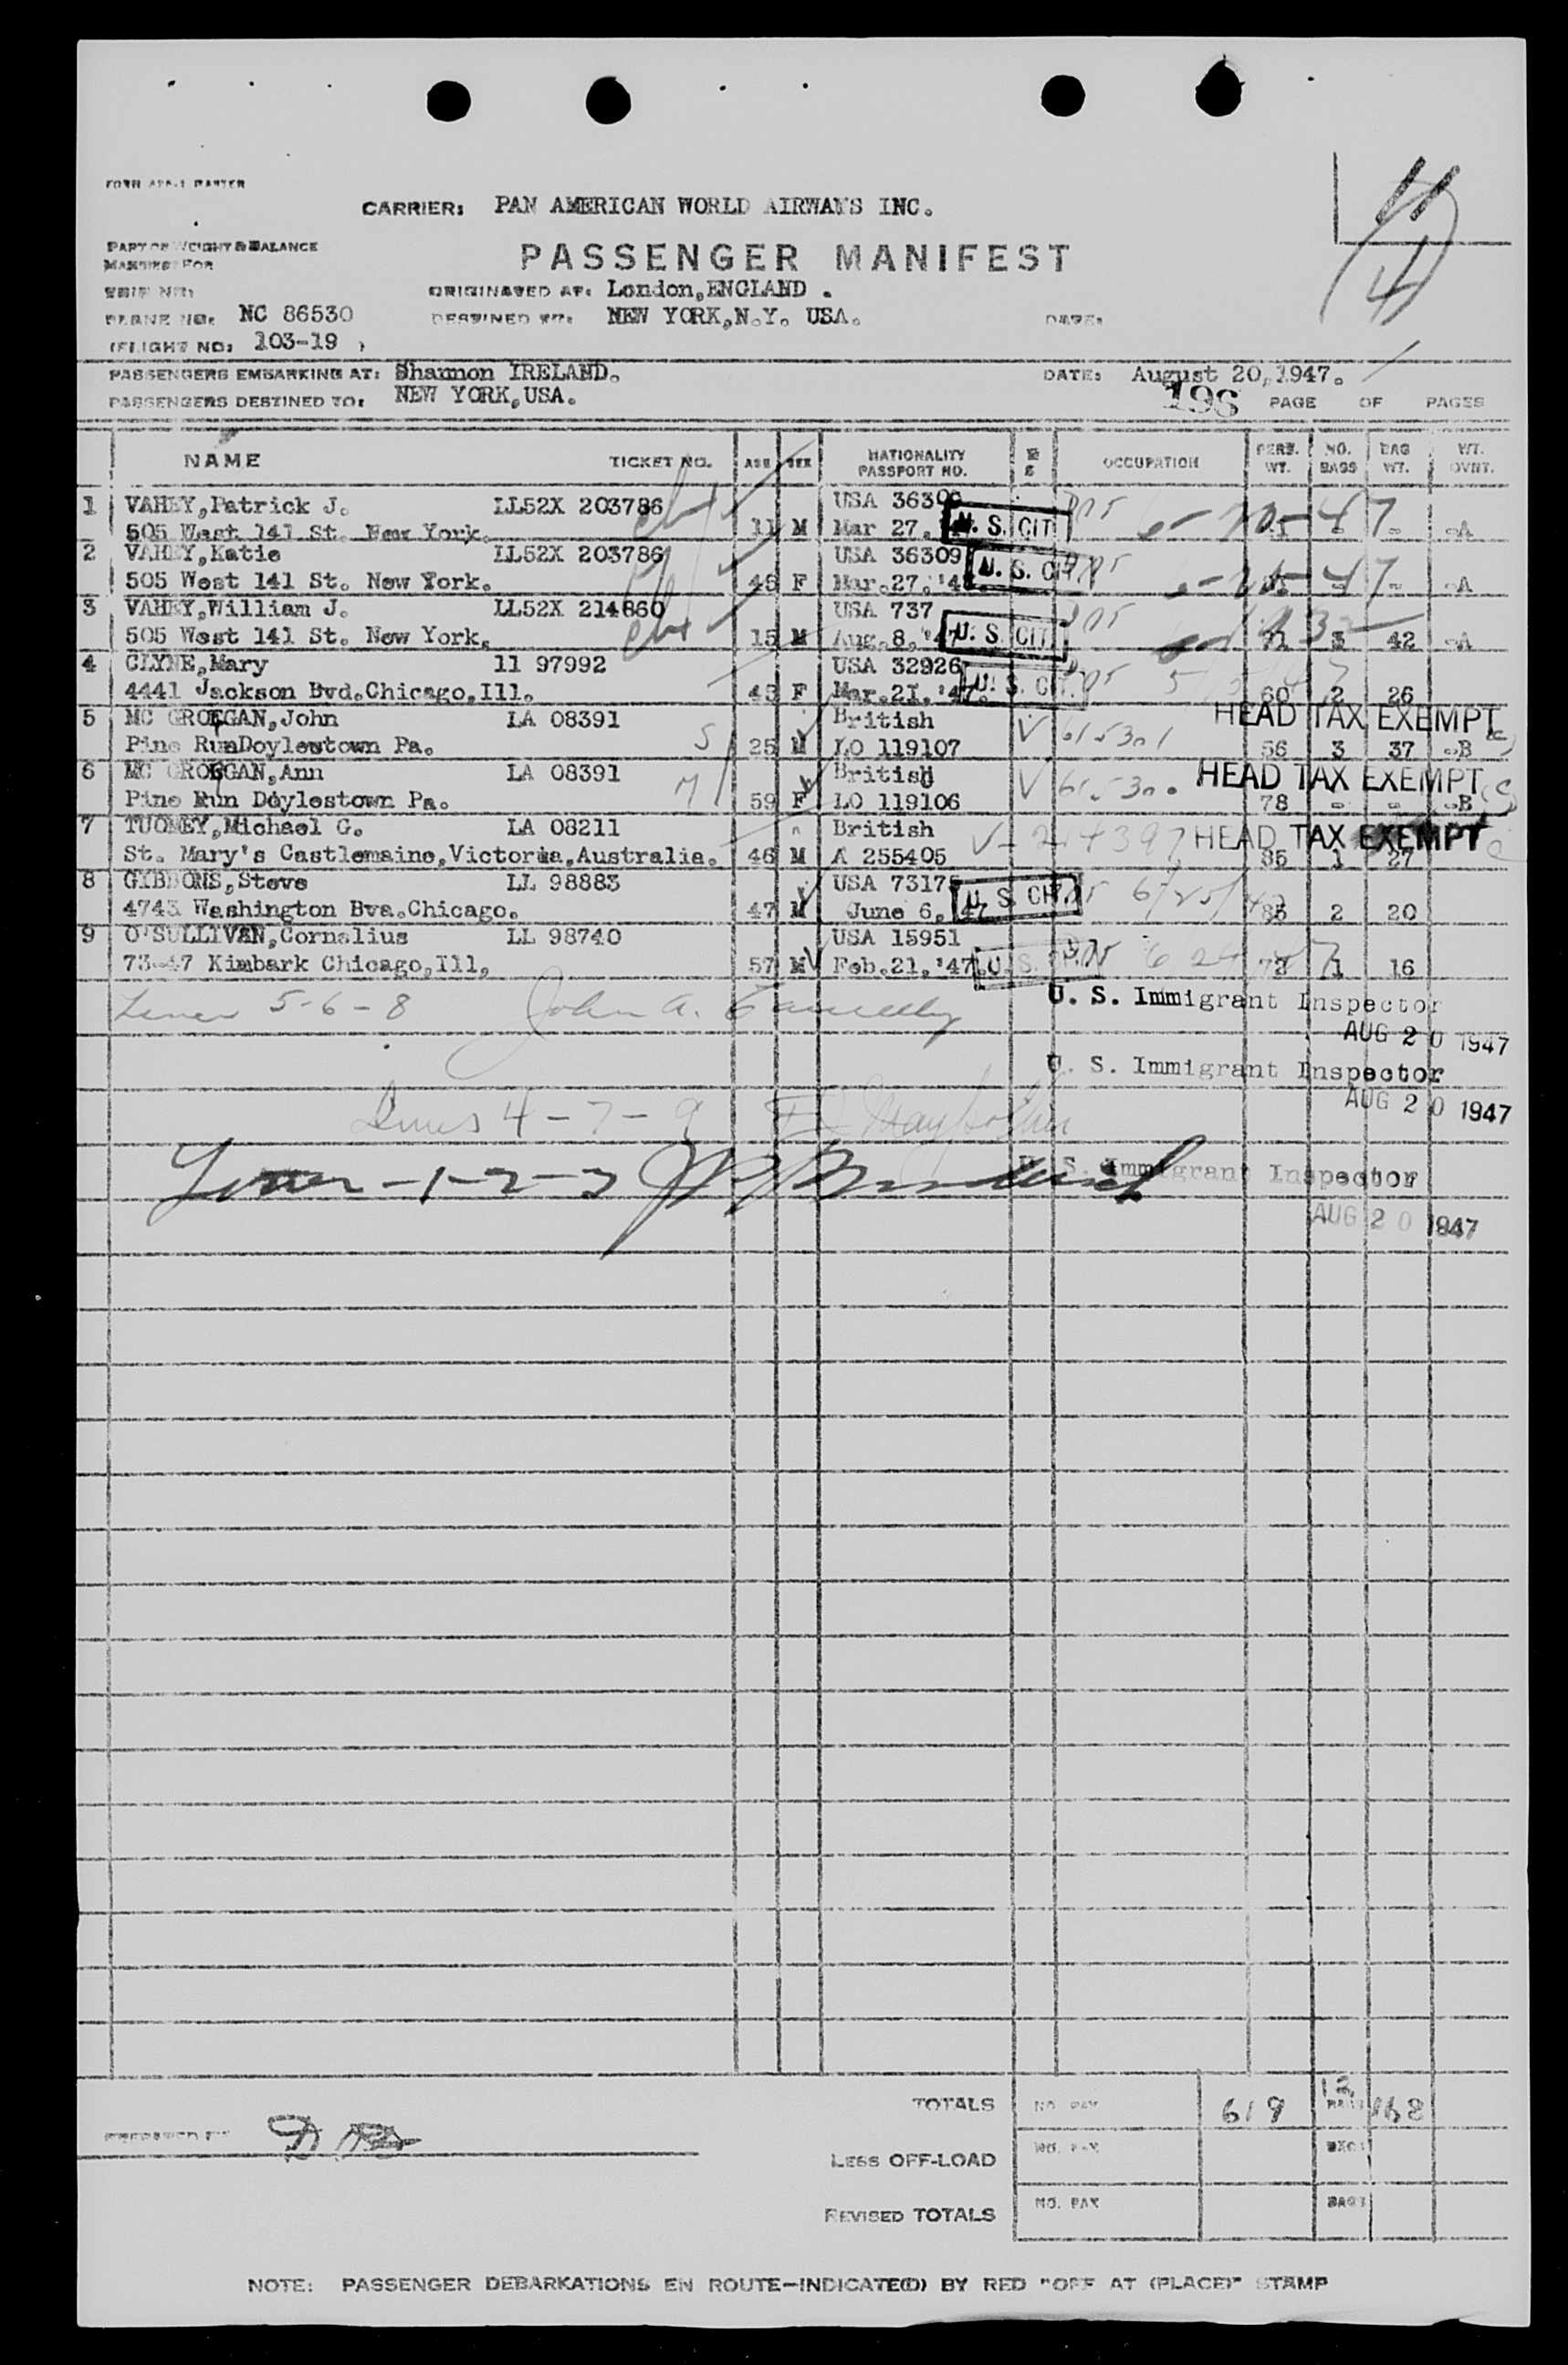 CARRIER: PAN AMERICAN WORLD AIRWAYS INC.
PART OF WEIGHT & BALANCE
MANIFEST FOR
PASSENGER MANIFEST
ORIGINATED AT: London, ENGLAND .
PLANE NO: NC 86530
DESTINED TO: NEW YORK, N.Y. USA.
DATE:
(FLIGHT NO: 103-19 )
PASSENGERS EMBARKING AT: Shannon IRELAND.
DATE: August 20, 1947.
PASSENGERS DESTINED TO: NEW YORK, USA.
198 PAGE OF PAGES
NAME TICKET NO. AGE SEX NATIONALITY PASSPORT NO. OCCUPATION PERS. WT. NO. BAGS BAG WT. WT. OVNT.
1 VAHEY, Patrick J. LL52X 203786 USA
505 West 141 St. New York. 11 M Mar 27. U. S. CIT - - -A
2 VAHEY, Katie LL52X 203786 USA 36309 U. S. CIT
505 West 141 St. New York. 45 F Mar. 27. - - -A
3 VAHEY, William J. LL52X 214860 USA 737
505 West 141 St. New York. 15 M Aug. 8, '47 U. S. CIT. 71 3 42 -A
4 CLYNE, Mary 11 97992 USA 32926
4441 Jackson Bvd. Chicago, Ill. 43 F Mar. 21. '47. U. S. CIT. 60 2 26
5 MC GROGGAN, John LA 08391 British HEAD TAX EXEMPT
Pine Run Doylestown Pa. S 25 M LO 119107 56 3 37 -B
6 MC GROGGAN, Ann LA 08391 British HEAD TAX EXEMPT
Pine Run Doylestown Pa. M 59 F LO 119106 78 - - -B
7 TUOMEY, Michael G. LA 08211 British HEAD TAX EXEMPT
St. Mary's Castlemaine, Victoria, Australia. 46 M A 255405 85 1 27
8 GIBBONS, Steve LL 98883 USA
4743 Washington Bva. Chicago. 47 M June 6, '47 U. S. CIT. 85 2 20
9 O'SULLIVAN, Cornelius LL 98740 USA 15951
73-47 Kimbark Chicago, Ill. 57 M Feb. 21. '47 U. S. 1 16
5-6-8 John A.
U. S. Immigrant Inspector
AUG 20 1947
U. S. Immigrant Inspector
AUG 20 1947
4-7-9
U. S. Immigrant Inspector
1-2-3
AUG 20 1947
TOTALS NO. PAX 619 12 BAGS 168
PREPARED BY
LESS OFF-LOAD NO. PAX
REVISED TOTALS NO. PAX BAGS
NOTE: PASSENGER DEBARKATIONS EN ROUTE-INDICATE(D) BY RED "OFF AT (PLACE)" STAMP